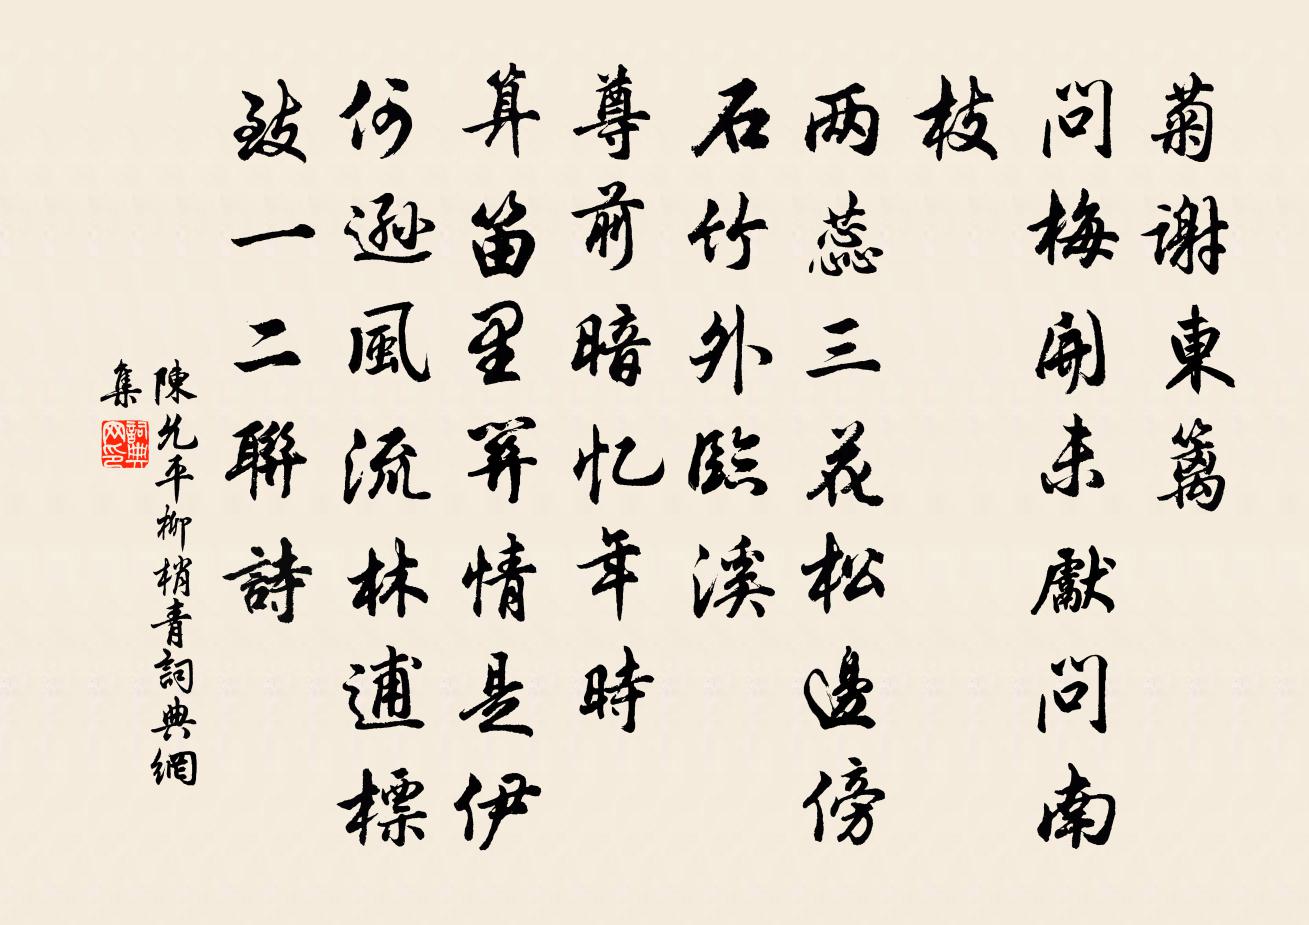 菊謝東篱
問梅開未獻問南
枝
两蕊三花松邊傍
石竹外臨溪
尊前暗忆年時
算笛里關情是伊
何遜風流林逋標
致一二聯詩
陳允平柳梢青詞典網
集
詞典
网印